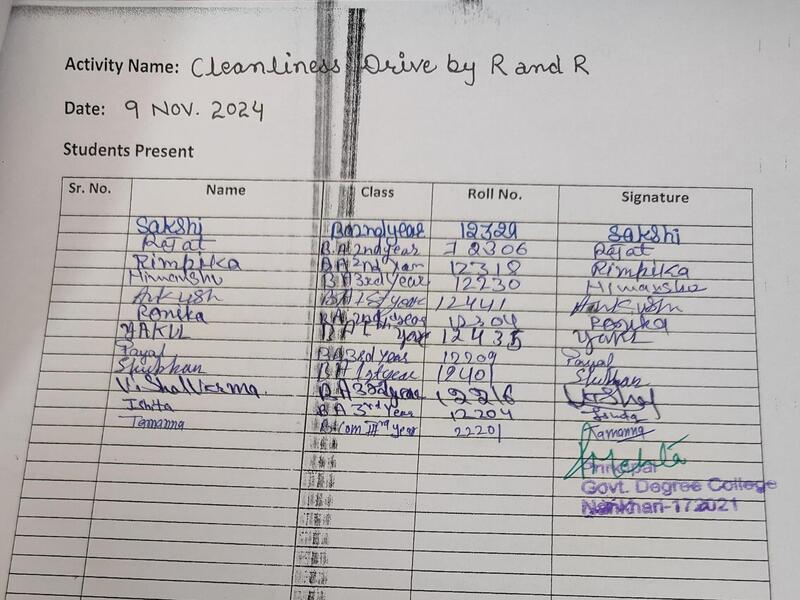 Activity Name: Cleanliness Drive by R and R
Date: 9 NOV. 2024
Students Present
Sr. No. Name Class Roll No. Signature
Sakshi BA 2nd year 12329 Sakshi
Rajat B.A 2nd year 12306 Rajat
Rimpika B A 2nd Year 12318 Rimpika
Himanshu B A 3rd Year 12230 Himanshu
Ankush BA 1st year 12441 Ankush
Ronika BA 2nd year 12304 Ronika
YAKUL BA 1st year 12435
Payal BA 3rd year 12209 Payal
Shubhan BA 1st year 12401 Shubhan
Vishal Verma BA 3rd year 12216 Vishal
Ishita BA 3rd Year 12204 Ishita
Tamanna B.Com IIIrd year 22201 Tamanna
Principal
Govt. Degree College
Nankhari-172021